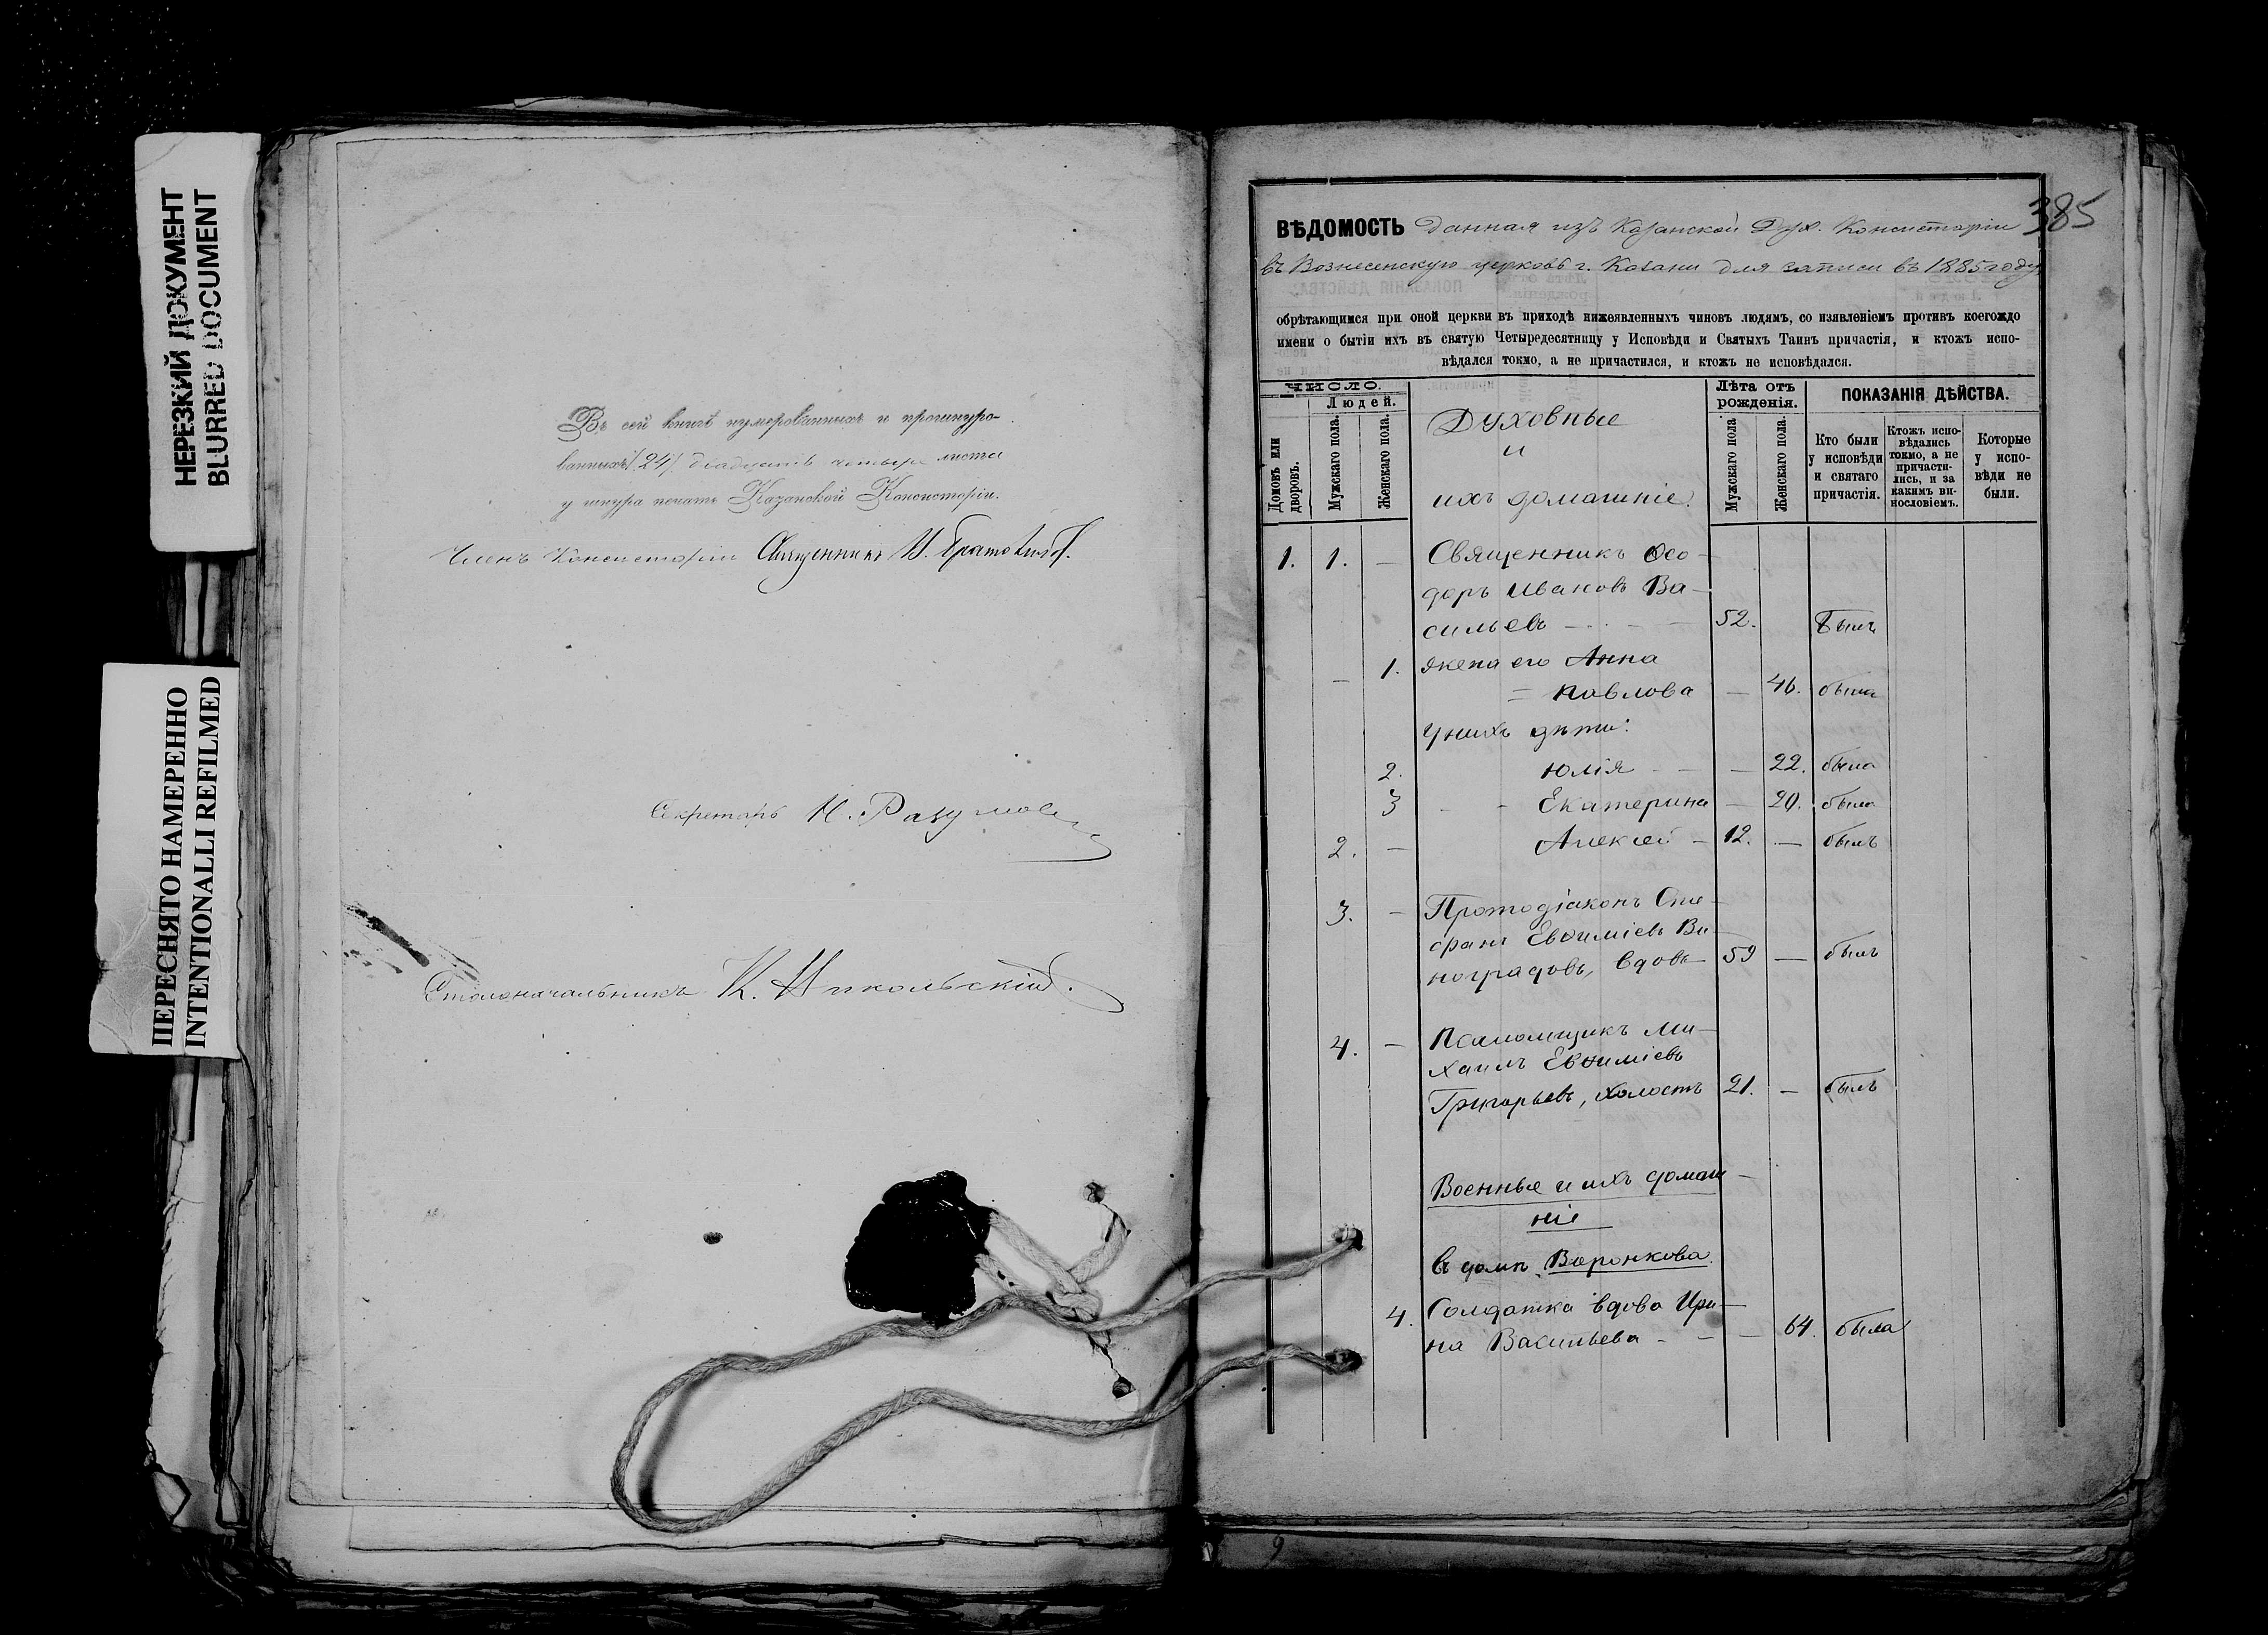 НЕРЕЗКИЙ ДОКУМЕНТ
BLURRED DOCUMENT
ПЕРЕСНЯТО НАМЕРЕННО
INTENTIONALLI REFILMED
Въ сей книгѣ нумерованныхъ и прошнуро-
ванныхъ /24/ двадцать четыре листа
у шнура печать Казанской Консисторіи.
Членъ Консисторіи Священникъ
Секретарь Н. Разумов
Столоначальникъ К. Никольскій.
385
ВѢДОМОСТЬ данная изъ Казанской Дух. Консисторіи
въ Вознесенскую церковь г. Казани для записи въ 1885 году
обрѣтающимся при оной церкви въ приходѣ нижеявленныхъ чиновъ людямъ, со изявленіемъ противъ коегождо
имени о бытіи ихъ въ святую Четыредесятницу у Исповѣди и Святыхъ Таинъ причастія, и ктожъ испо-
вѣдался токмо, а не причастился, и ктожъ не исповѣдался.
ЧИСЛО.
Людей.
Домовъ или дворовъ.
Мужскаго пола.
Женскаго пола.
Духовные
и
ихъ домашніе.
Лѣта отъ рожденія.
Мужскаго пола
Женскаго пола.
ПОКАЗАНІЯ ДѢЙСТВА.
Кто были у исповѣди и святаго причастія.
Ктожъ испо-вѣдались токмо, а не причасти-лись, и за какимъ ви-нословіемъ.
Которые у испо-вѣди не были.
1. 1. — Священникъ Ѳео-
доръ Ивановъ Ва-
сильевъ — 52. Былъ
— 1. жена его Анна
= Павлова — 46. была
У нихъ дѣти:
2. Юлія — — 22. была
3 Екатерина — 20. была
2. — Алексѣй — 12. — былъ
3. — Протодіаконъ Сте-
фанъ Евѳиміевъ Ви-
ноградовъ, вдовъ 59 — былъ
4. — Псаломщикъ Ми-
хаилъ Евѳиміевъ
Григорьевъ, холостъ 21. — былъ
Военные и ихъ домаш-
ніе
въ домѣ Воронкова
4. Солдатка вдова Ири-
на Васильева — — 64. была
9